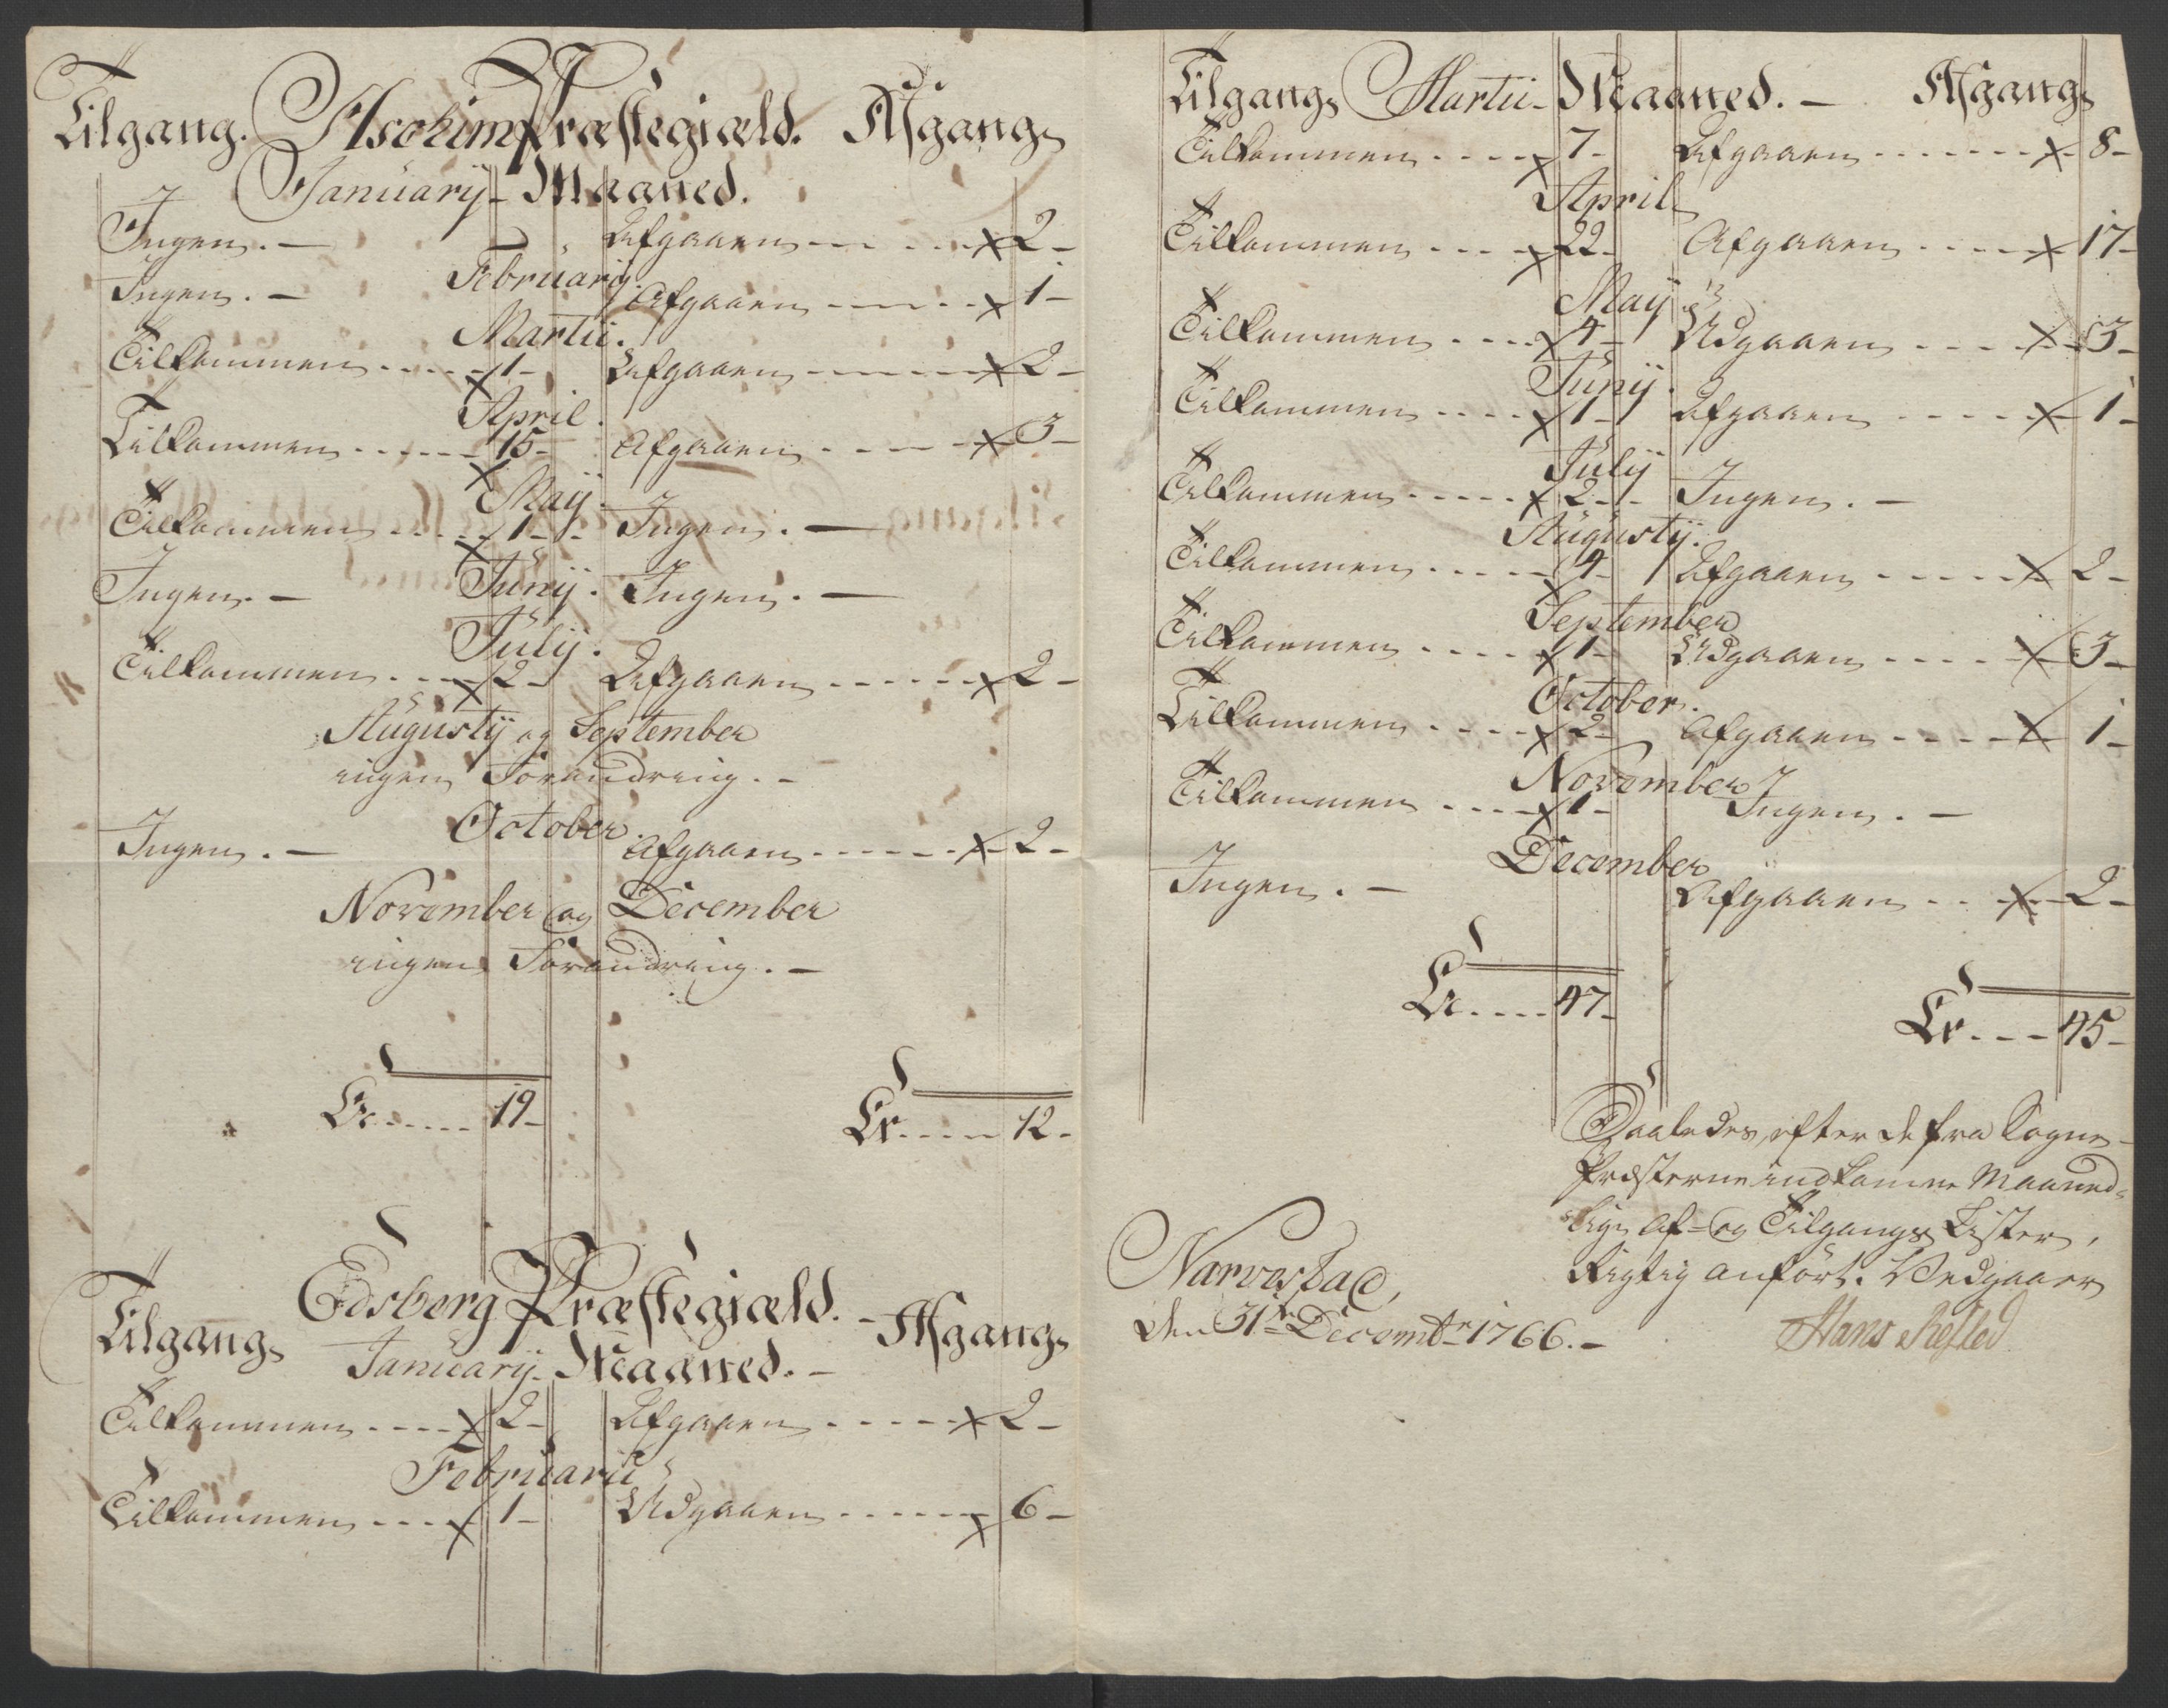 Tilgang. Aschim Præstegiæld. Afgang
January Maaned.
Ingen. — Afgaaen - - - x 2 -
February.
Ingen. — Afgaaen - - - x 1 -
Martii.
Tilkommen - - - x 1 - Afgaaen - - - x 2 -
April.
Tilkommen - - - x 15 - Afgaaen - - - x 3 -
Maij.
Tilkommen - - - x 1 - Ingen. —
Junij.
Ingen. — Ingen. —
Julij.
Tilkommen - - - x 2 - Afgaaen - - - x 2 -
Augustij og September
ingen Forandring. -
October.
Ingen. — Afgaaen - - - x 2 -
November og December
ingen Forandring. -
Lr - - - 19 - Lr - - - 12 -
Edsberg Præstegiæld. -
Tilgang January Maaned. - Afgang
Tilkommen - - - x 2 - Afgaaen - - - x 2 -
Februarii
Tilkommen - - - x 1 - Udgaaen - - - x 6 -
Tilgang Martii Maaned. - Afgang
Tilkommen - - - x 7 - Afgaaen - - - x 8 -
April
Tilkommen - - - x 22 - Afgaaen - - - x 17 -
Maij
Tilkommen - - - x 4 - Udgaaen - - - x 3 -
Junij.
Tilkommen - - - x 1 - Afgaaen - - - x 1 -
Julij
Tilkommen - - - x 2 - Ingen. —
Augustij.
Tilkommen - - - x 4 - Afgaaen - - - x 2 -
September
Tilkommen - - - x 1 - Udgaaen - - - x 3 -
October.
Tilkommen - - - x 2 - Afgaaen - - - x 1 -
November
Tilkommen - - - x 1 - Ingen. —
December
Ingen. — Afgaaen - - - x 2 -
Lr - - - 47 -
Lr - - - 45 -
Saaledes efter de fra Sogne-
Præsterne indkomne Maaned-
lige Af- og Tilgangs Lister,
Rigtig anført. Vedgaaer
Narvestad,
den 31te Decembr 1766. -
Hans